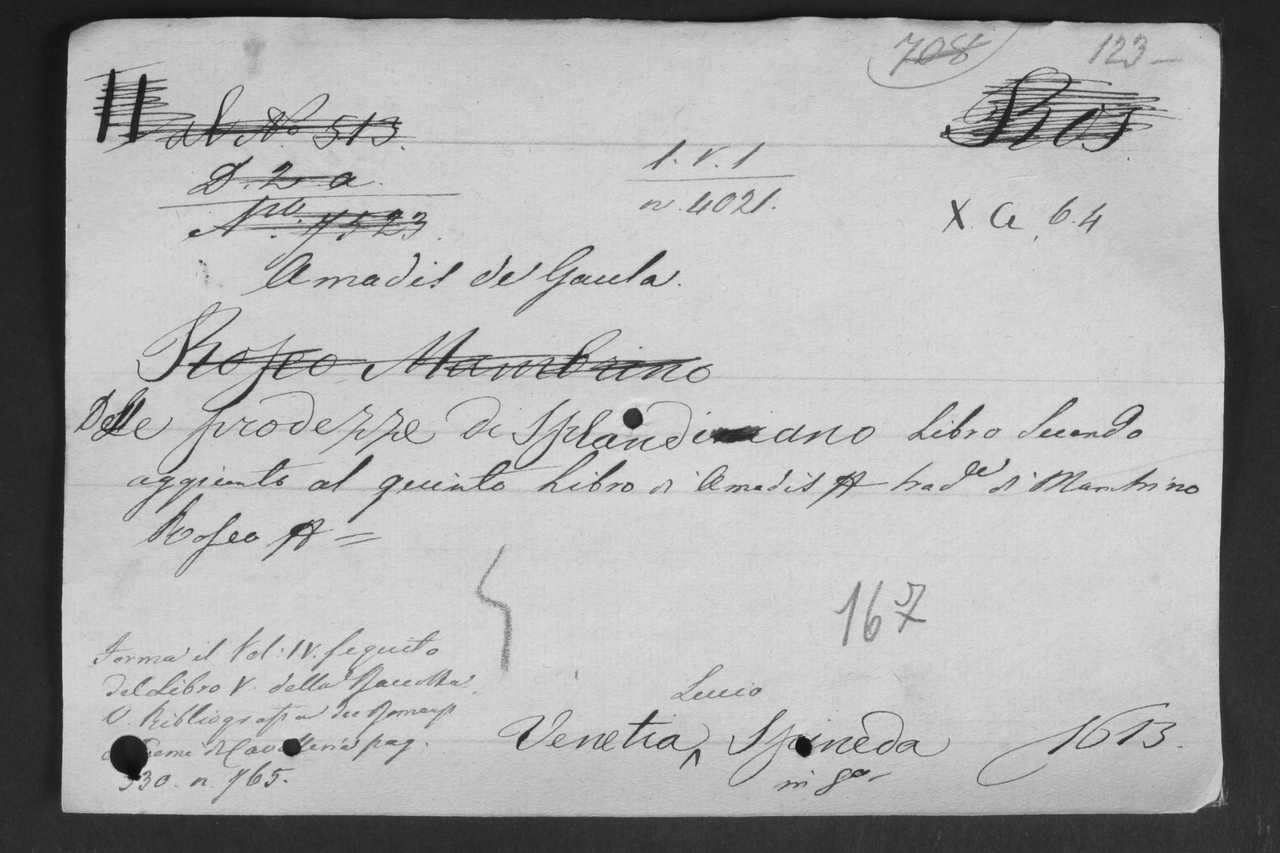 708 123 –
Ros.
al N.º 513.
D. 2 a.
1. v. 1
n. 4021.
X. a. 6.4
N.ro 7523.
Amadis de Gaula.
Roseo Mambrino
Delle prodezze di Splandiano Libro Secondo
aggiunto al quinto Libro di Amadis trad.te di Mambrino
Roseo =
167
Forma il Vol: IV. seguito
del Libro V. della Raccolta.
V. Bibliografia dei Romanzi
e Poemi di Cavalleria pag.
330. n. 765.
Lucio
Venetia, ^ Spineda 1613.
in 8.º